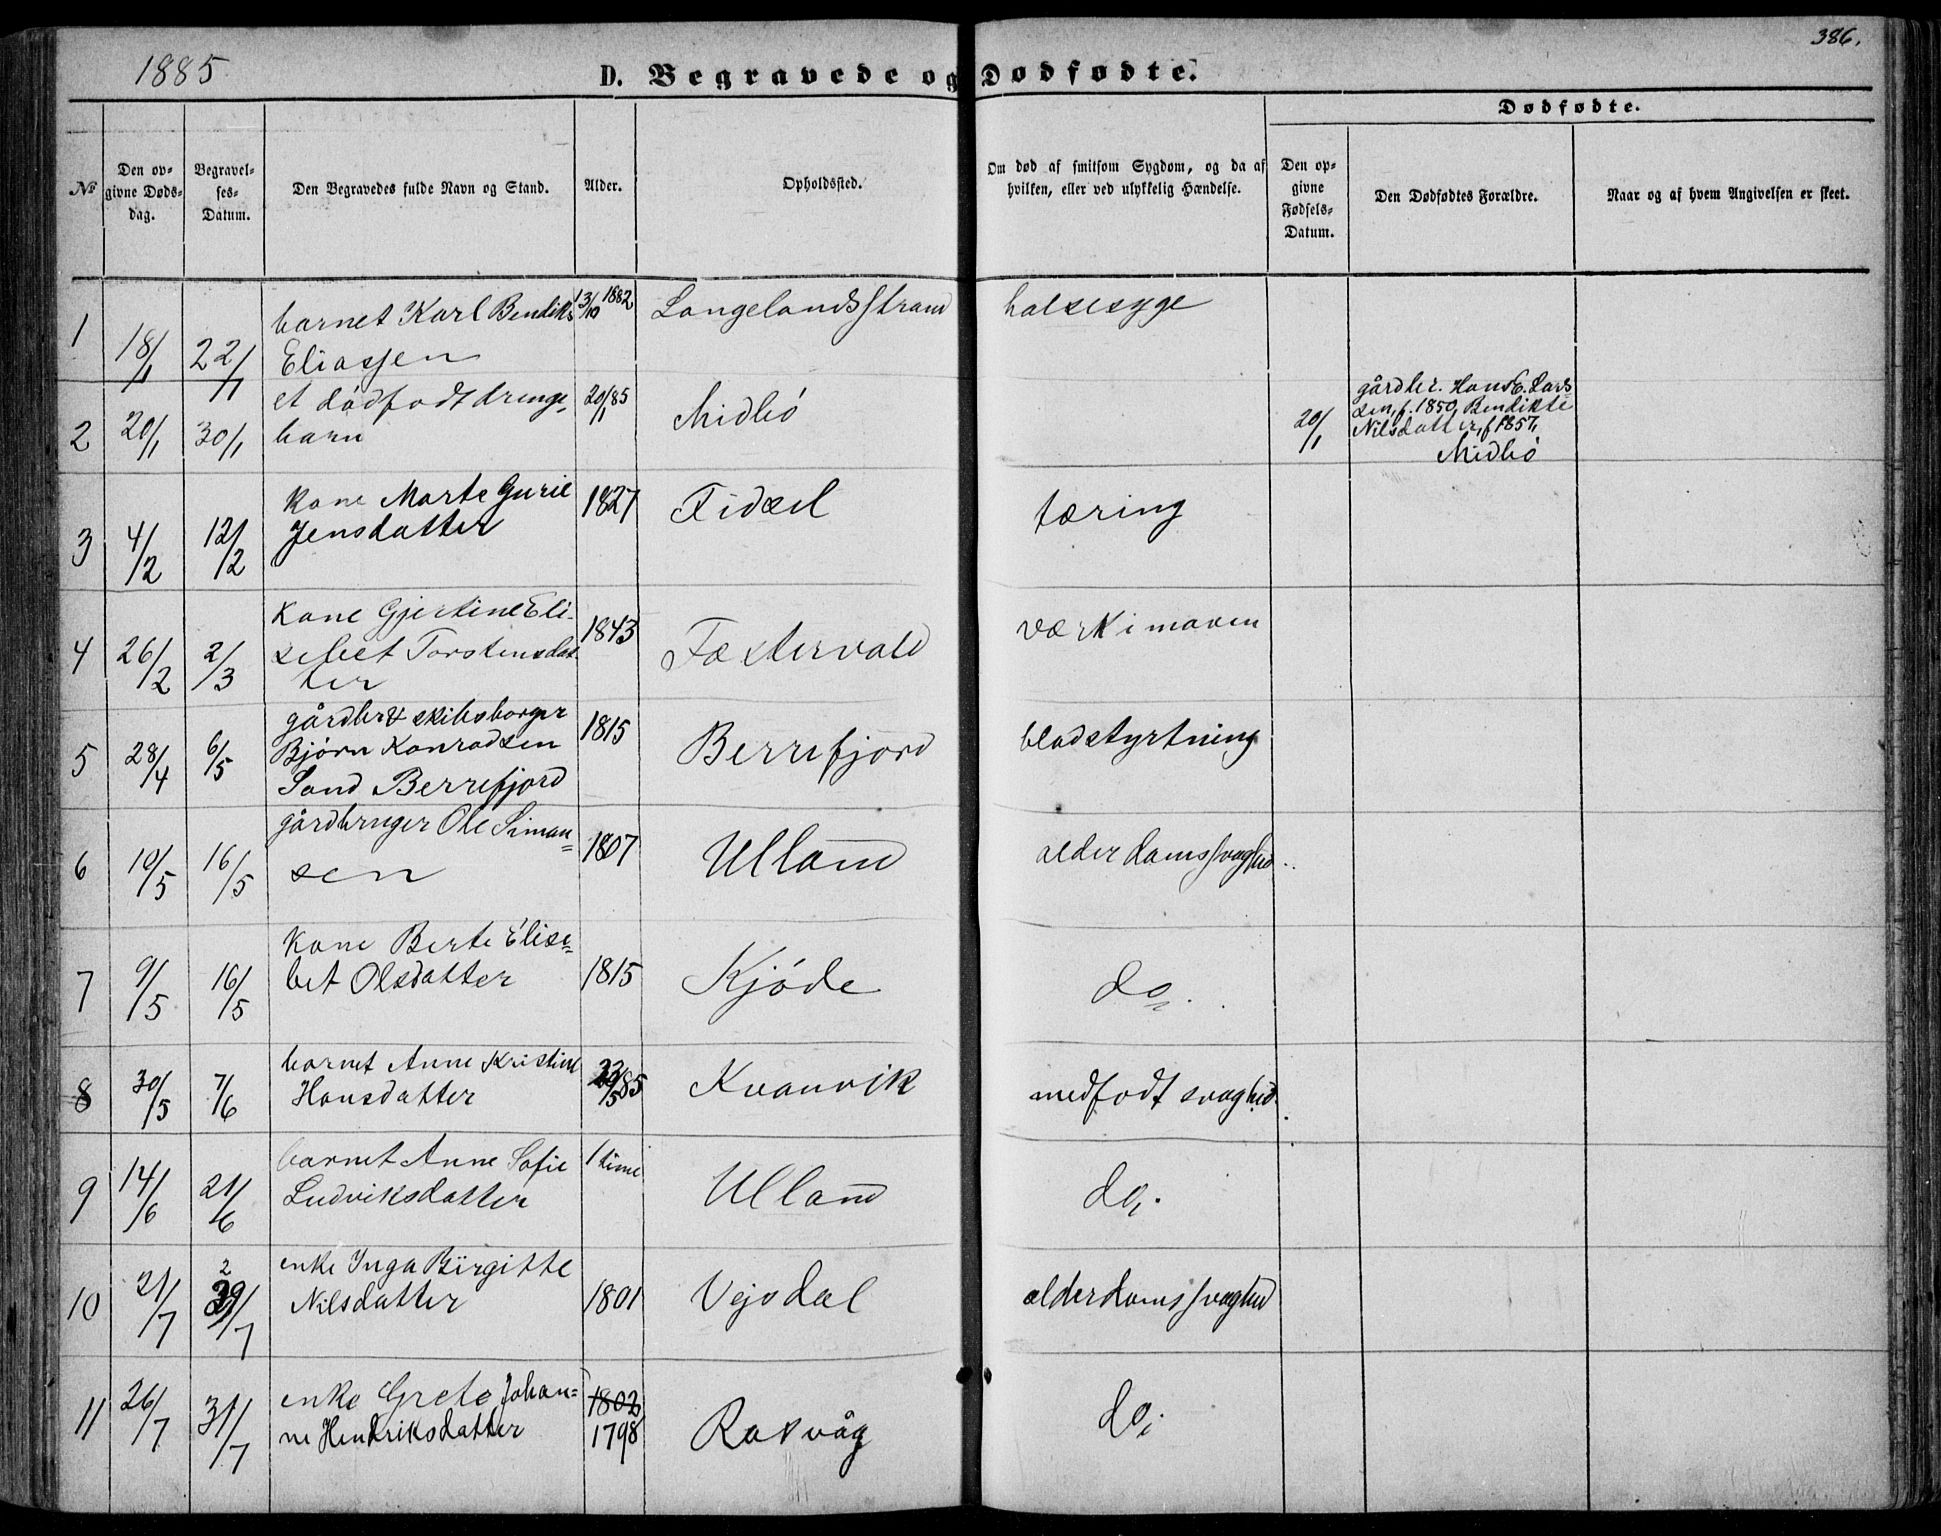 1885
386.
D. Begravede og Dødfødte.
Dødfødte.
№
Den op-
givne Døds-
dag.
Begravel-
ses-
Datum.
Den Begravedes fulde Navn og Stand.
Alder.
Opholdssted.
Om død af smitsom Sygdom, og da af
hvilken, eller ved ulykkelig Hændelse.
Den op-
givne
Fødsels-
Datum.
Den Dødfødtes Forældre.
Naar og af hvem Angivelsen er skeet.
1 18/1 22/1 barnet Karl Bendiks 13/10 1882 Langelandsstrand halsesyge
Eliassen
2 20/1 30/1 et dödfødt drenge- 20/1 85 Midbö 20/1
barn
gårdbr. Hans E. Lars
sen, f. 1850, Bendikte
Nilsdatter, f 1857,
Midbö
3 4/2 12/2 Kone Marte Gurie 1827 Fidæl tæring
Jensdatter
4 26/2 2/3 Kone Gjertine Eli- 1843 værk i maven
sebet Torstensdat
ter
5 28/4 6/5 gårdbr & skibsborger 1815 Berrefjord blodstyrtning
Bjørn Konradsen
Sand Berrefjord
6 10/5 16/5 gårdbruger Ole Simon= 1807 Ulland alderdomssvaghed
sen
7 9/5 16/5 Kone Berte Elise= 1815 Kjöde do.
bet Olsdatter
8 30/5 7/6 barnet Anne Kristine 23/5 85 Kvanvik medfødt svaghed.
Hansdatter
9 14/6 21/6 barnet Anne Sofie 1 time Ulland do.
Ludviksdatter
10 21/7 29/7 enke Inga Birgitte 1801 Vejsdal alderdomssvaghed
Nilsdatter
11 26/7 31/7 enke Grete Johan= 1802 Rakvåg do.
ne Hendriksdatter 1798